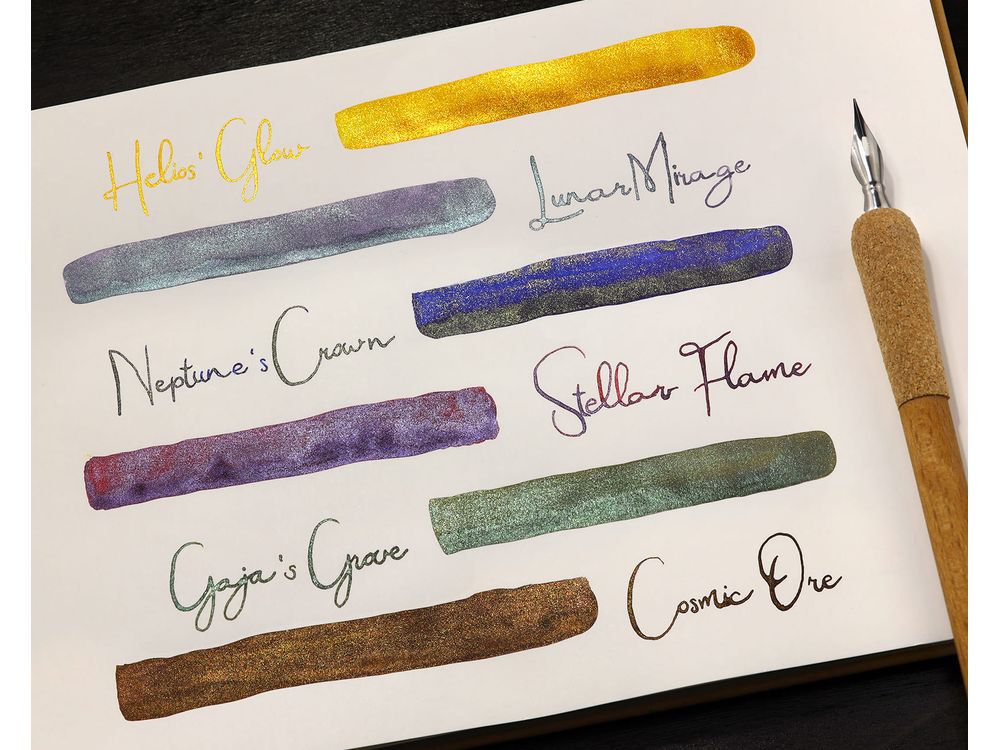 Helios' Glow
Lunar Mirage
Neptune's Crown
Stellar Flame
Gaja's Grove
Cosmic Ore